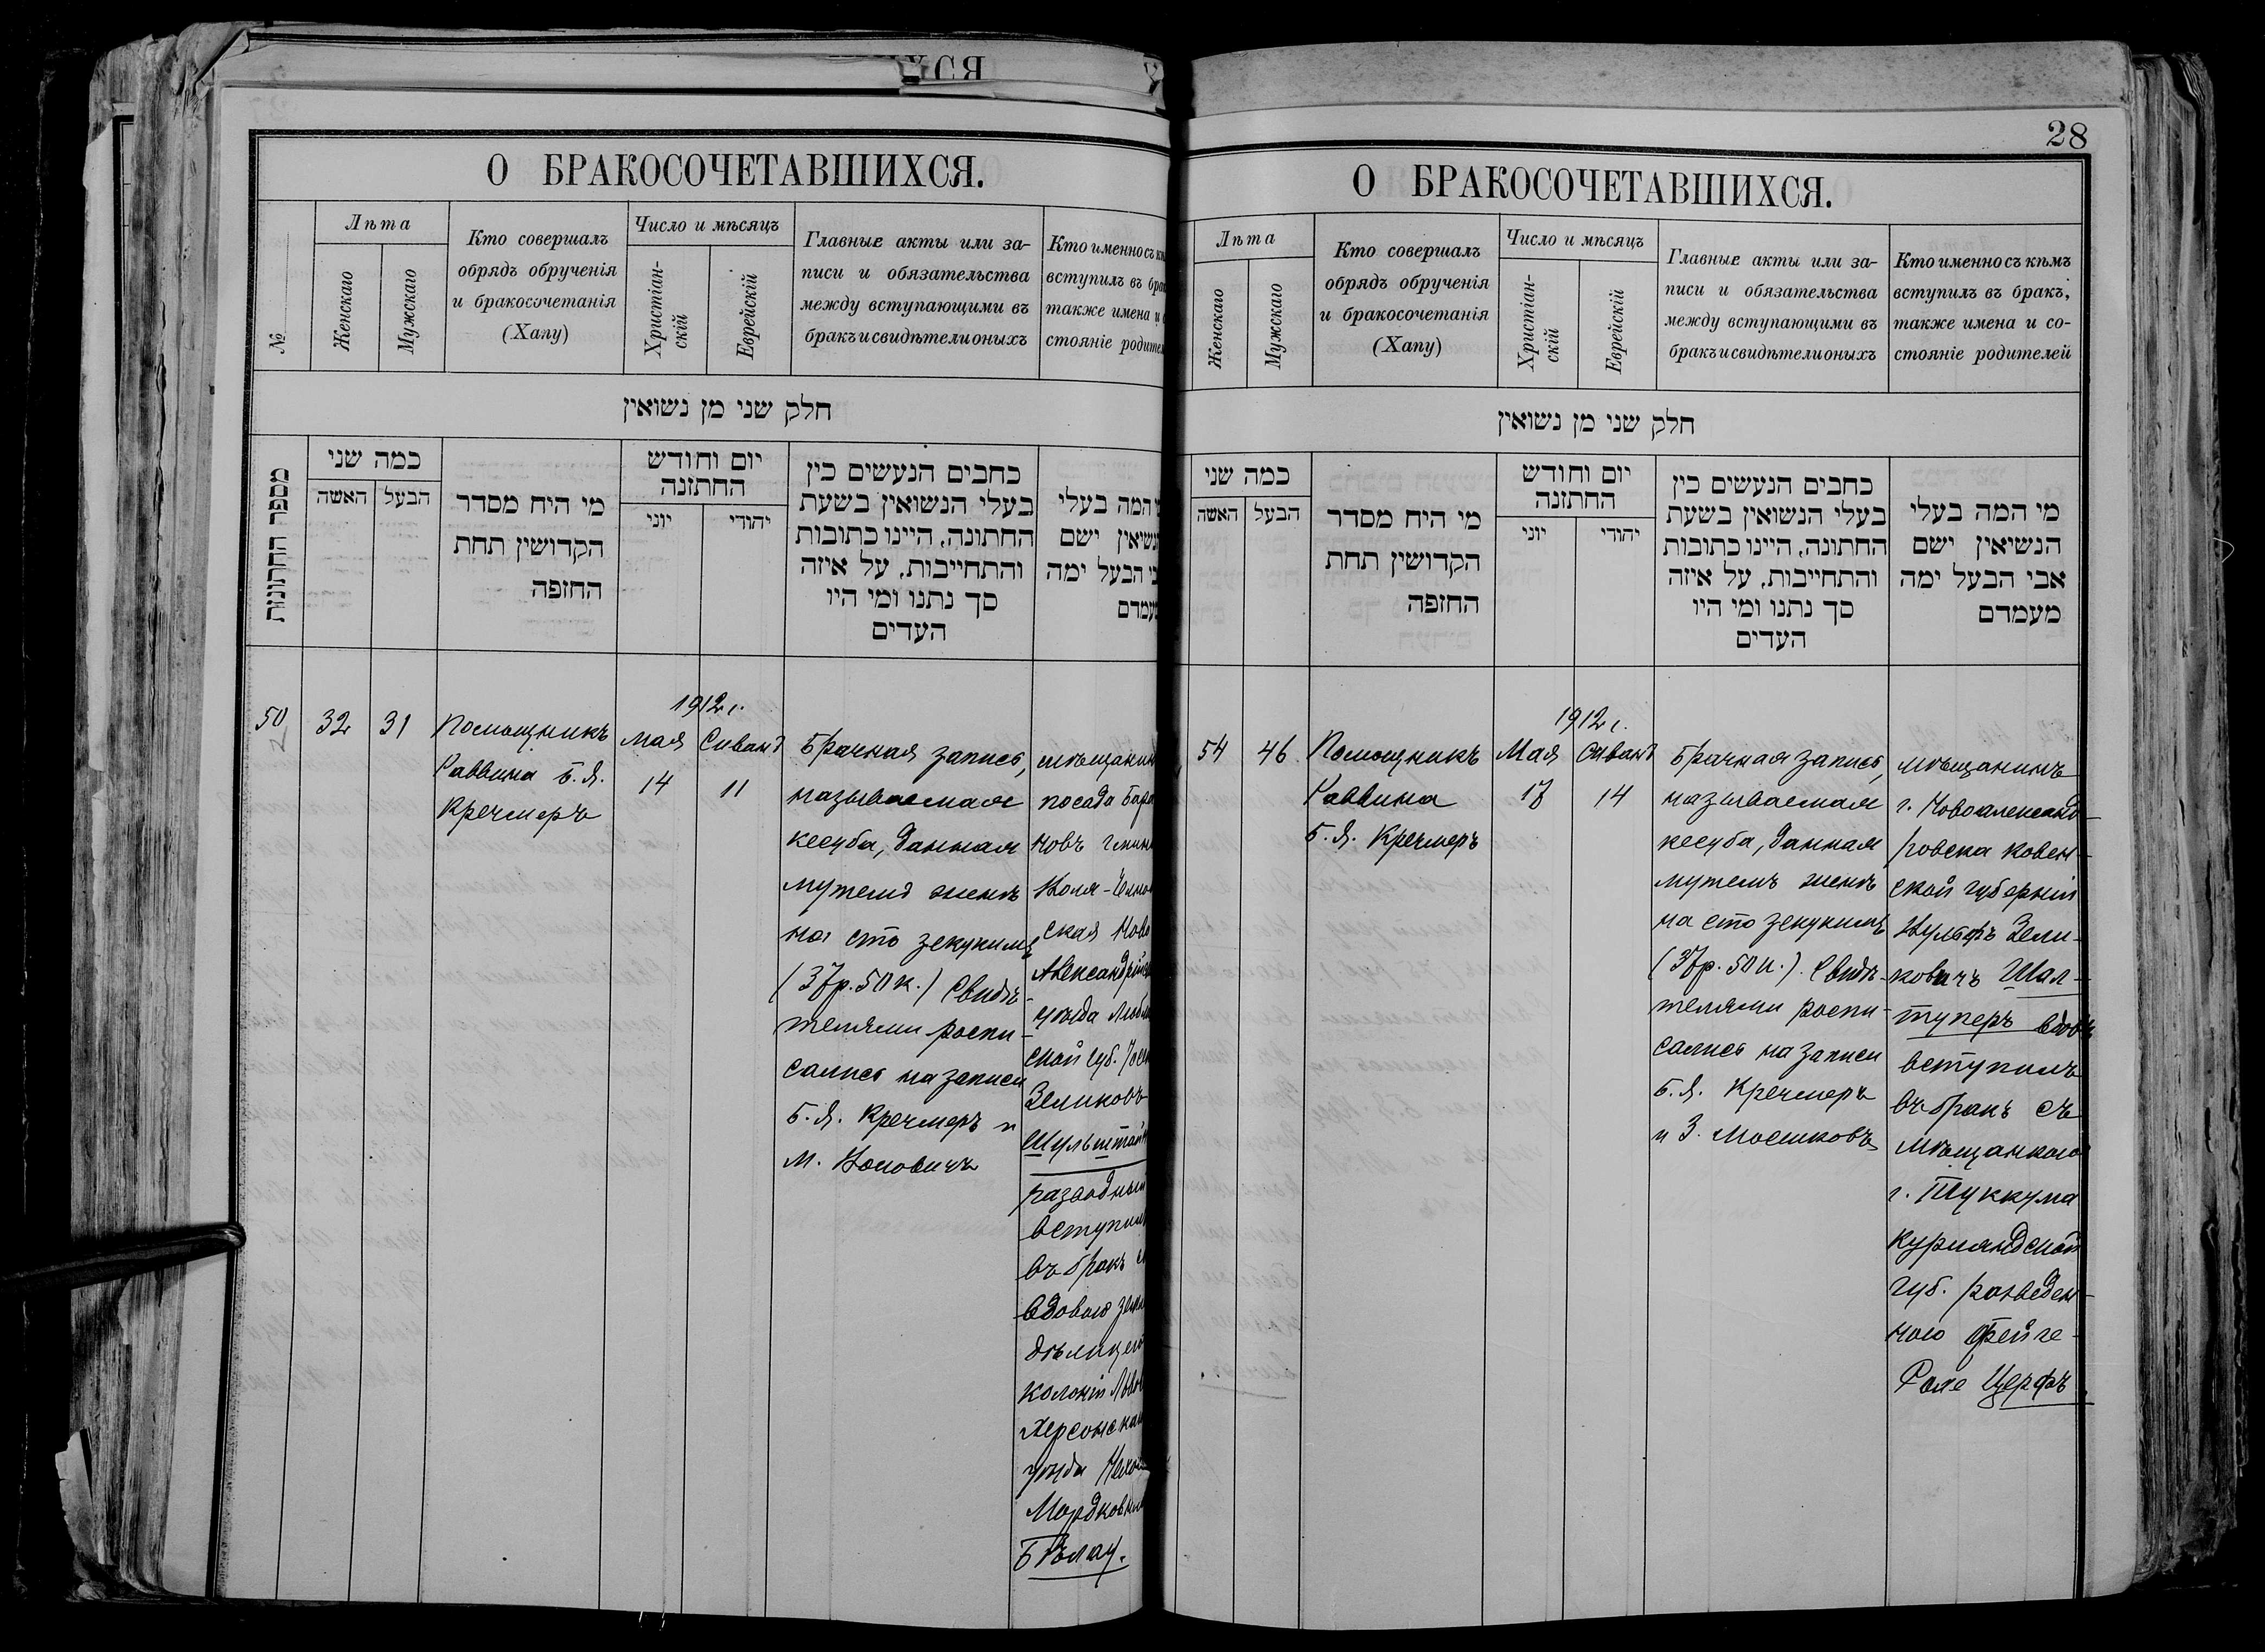 28
О БРАКОСОЧЕТАВШИХСЯ.
№
Лѣта
Женскаго
Мужскаго
Кто совершалъ
обрядъ обрученія
и бракосочетанія
(Хапу)
Число и мѣсяцъ
Христіан-
скій
Еврейскій
Главные акты или за-
писи и обязательства
между вступающими въ
бракъ и свидѣтели оныхъ
Кто именно съ
вступилъ въ
также имена и
стояніе
חלק שני מן נשואין
מספר החתונות
כמה שני
האשה
הבעל
מי היח מסדר
הקדושין תחת
החזפה
יום וחודש
החתזנה
יוני
יהודי
כחבים הנעשים כין
בעלי הנשואין בשעת
החתונה, היינו כתובות
והתחייבות, על איזה
סך נתנו ומי היו
העדים
המה בעלי
ישם
הבעל ימה
50
32
31
Помощникъ
Раввина Б. Я.
Кречмеръ
1912 г.
Мая
14
Сиванъ
11
Брачная запись,
называемая
кесуба, данная
мужемъ женѣ
на сто зекукимъ
(37р. 50 к.) Свидѣ-
телями роспи-
сались на записи
Б. Я. Кречмеръ и
М.
посада
новъ
ская
уѣзда
ской губ.
Зеликовъ
вступилъ
въ бракъ
вдовою
колоніи
уѣзда
Бѣлау.
О БРАКОСОЧЕТАВШИХСЯ.
Лѣта
Женскаго
Мужскаго
Кто совершалъ
обрядъ обрученія
и бракосочетанія
(Хапу)
Число и мѣсяцъ
Христіан-
скій
Еврейскій
Главные акты или за-
писи и обязательства
между вступающими въ
бракъ и свидѣтели оныхъ
Кто именно съ кѣмъ
вступилъ въ бракъ,
также имена и со-
стояніе родителей
חלק שני מן נשואין
כמה שני
האשה
הבעל
מי היח מסדר
הקדושין תחת
החזפה
יום וחודש
החתזנה
יוני
יהודי
כחבים הנעשים כין
בעלי הנשואין בשעת
החתונה, היינו כתובות
והתחייבות, על איזה
סך נתנו ומי היו
העדים
מי המה בעלי
הנשיאין ישם
אבי הבעל ימה
מעמדם
54
46
Помощникъ
Раввина
Б. Я. Кречмеръ
1912 г.
Мая
17
Сиванъ
14
Брачная запись,
называемая
кесуба, данная
мужемъ женѣ
на сто зекукимъ
(37р. 50 к.). Свидѣ-
телями роспи-
сались на записи
Б. Я. Кречмеръ
и З. Мосшковъ
мѣщанинъ
г. Новоалександ-
ровска Ковен-
ской губерніи
Вульфъ Зели-
ковичъ Шал-
туперъ вдовъ
вступилъ
въ бракъ съ
мѣщанкою
г. Туккума
Курляндской
губ. разведен-
ною Фейге-
Розе Церфъ